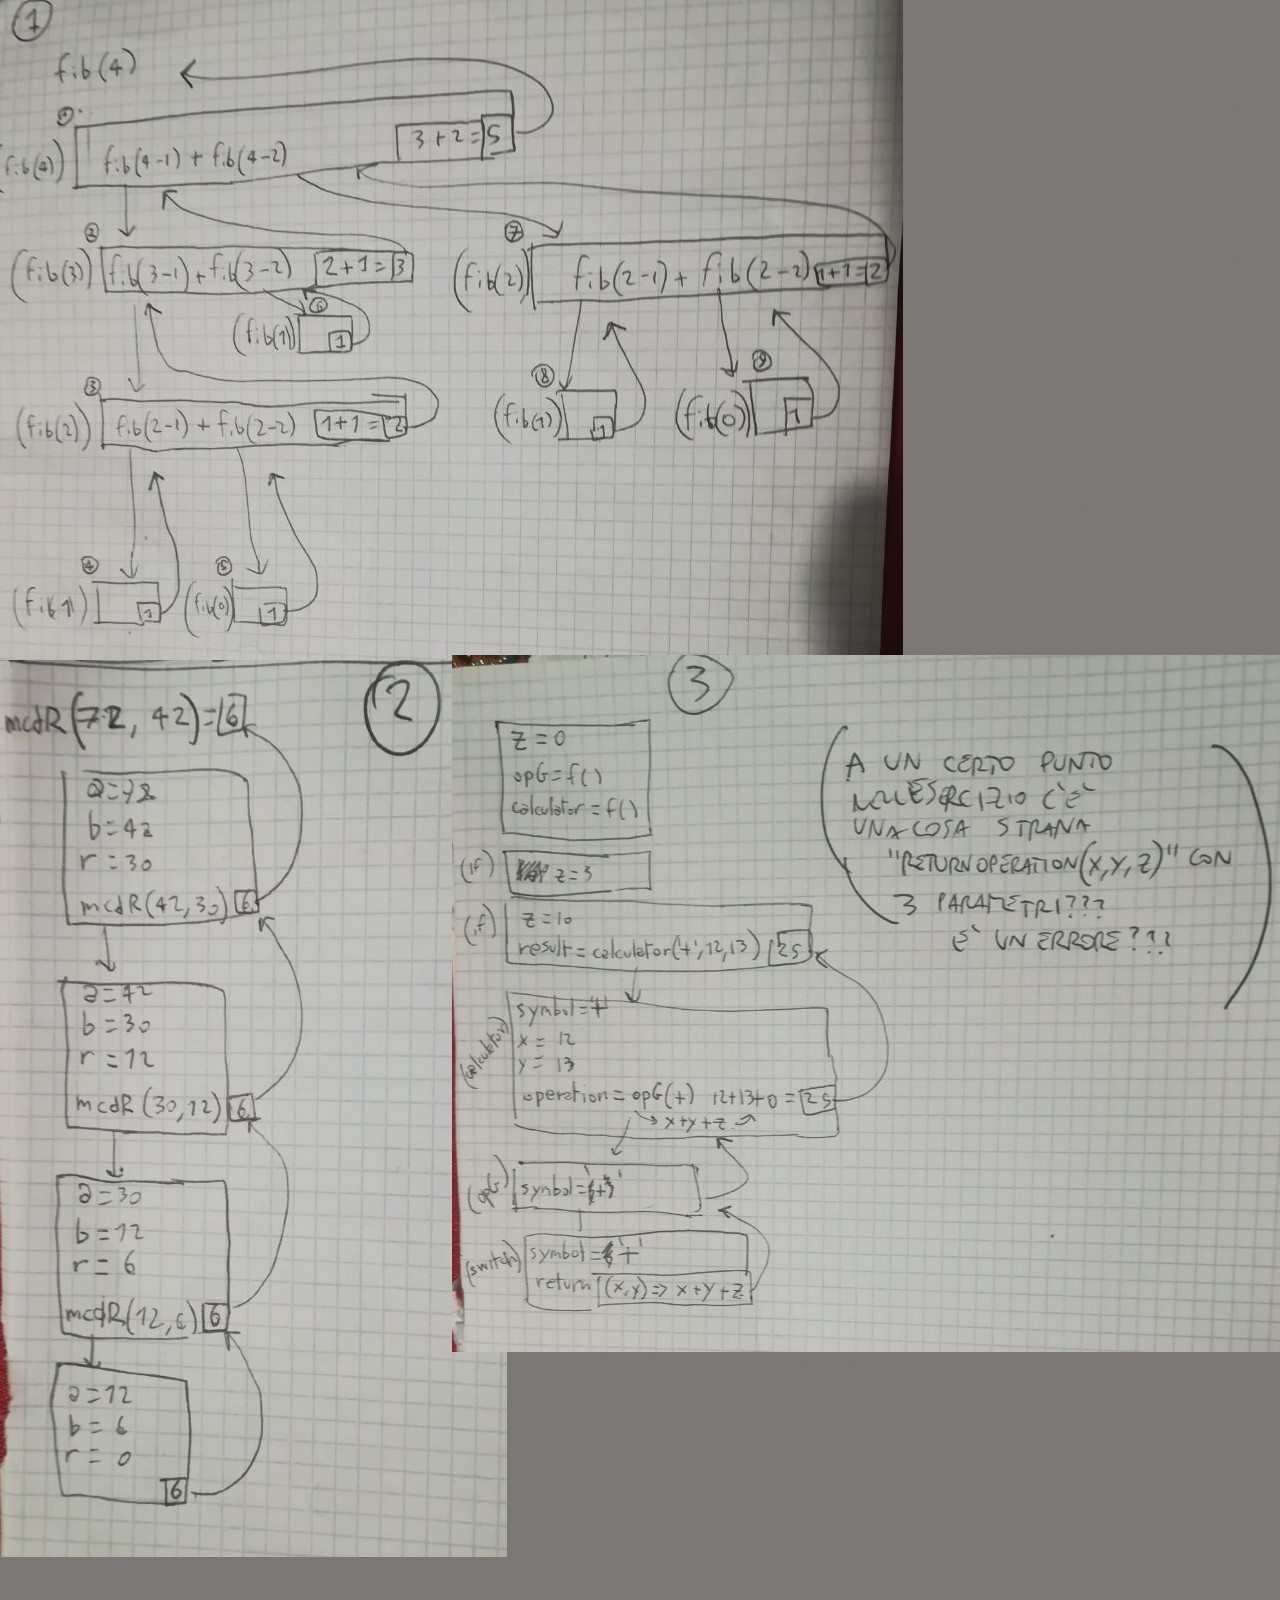 1
fib(4)
1
(fib(4)) fib(4-1) + fib(4-2) 3+2=5
2
(fib(3)) fib(3-1)+fib(3-2) 2+1=3
6
(fib(1)) 1
3
(fib(2)) fib(2-1) + fib(2-2) 1+1=2
4
(fib1) 1
5
(fib(0)) 1
7
(fib(2)) fib(2-1) + fib(2-2) 1+1=2
8
(fib(1)) 1
9
(fib(0)) 1
2
mcdR(72, 42)=6
a=72
b=42
r=30
mcdR(42,30) 6
a=42
b=30
r=12
mcdR(30,12) 6
a=30
b=12
r=6
mcdR(12,6) 6
a=12
b=6
r=0
6
3
z=0
opG=f()
calculator=f()
(if) z=3
(if) z=10
result=calculator('+',12,13) 25
(calculator) symbol='+'
x= 12
y= 13
operation= opG(+) 12+13+0=25
→ x+y+z
(opG) symbol='+'
(switch) symbol='+'
return (x,y)=> x+y+z
(A UN CERTO PUNTO
NELL'ESERCIZIO C'E'
UNA COSA STRANA
"RETURN OPERATION(X,Y,Z)" CON
3 PARAMETRI???
E' UN ERRORE???)